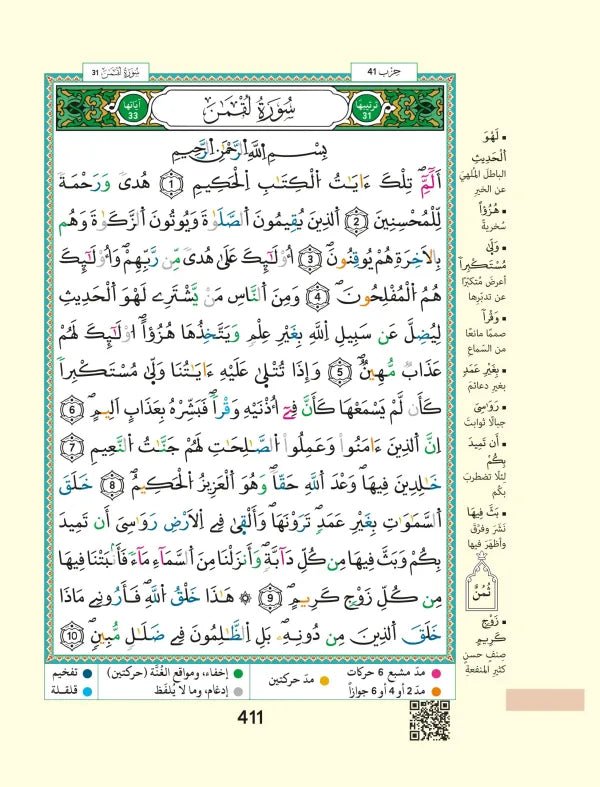 حِزْب 41
سُورَةُ لُقْمَٰنَ 31
ترتيبها 31
سُورَةُ لُقْمَٰنَ
آيَاتها 33
بِسْمِ اللَّهِ الرَّحْمَٰنِ الرَّحِيمِ
أَلَٓمِّٓۖ تِلْكَ ءَايَٰتُ اُ۬لْكِتَٰبِ اِ۬لْحَكِيمِ 1 هُدىٗ وَرَحْمَةٗ
لِّلْمُحْسِنِينَ 2 اَ۬لذِينَ يُقِيمُونَ اَ۬لصَّلَوٰةَ وَيُوتُونَ اَ۬لزَّكَوٰةَ وَهُم
بِالَاخِرَةِ هُمْ يُوقِنُونَۖ 3 أُوْلَٰٓئِكَ عَلَىٰ هُدىٗ مِّن رَّبِّهِمْۖ وَأُوْلَٰٓئِكَ
هُمُ اُ۬لْمُفْلِحُونَۖ 4 وَمِنَ اَ۬لنَّاسِ مَنْ يَّشْتَرِے لَهْوَ اَ۬لْحَدِيثِ
لِيُضِلَّ عَن سَبِيلِ اِ۬للَّهِ بِغَيْرِ عِلْمٖ وَيَتَّخِذُهَا هُزُؤاًۖ اُوْلَٰٓئِكَ لَهُمْ
عَذَابٞ مُّهِينٞۖ 5 وَإِذَا تُتْلَىٰ عَلَيْهِ ءَايَٰتُنَا وَلَّىٰ مُسْتَكْبِراٗ
كَأَن لَّمْ يَسْمَعْهَا كَأَنَّ فِےٓ أُذْنَيْهِ وَقْراٗۖ فَبَشِّرْهُ بِعَذَابٍ اَلِيمٍۖ 6
اِنَّ اَ۬لذِينَ ءَامَنُواْ وَعَمِلُواْ اُ۬لصَّٰلِحَٰتِ لَهُمْ جَنَّٰتُ اُ۬لنَّعِيمِ 7
خَٰلِدِينَ فِيهَا وَعْدَ اَ۬للَّهِ حَقّاٗۖ وَهُوَ اَ۬لْعَزِيزُ اُ۬لْحَكِيمُۖ 8 خَلَقَ
اَ۬لسَّمَٰوَٰتِ بِغَيْرِ عَمَدٖ تَرَوْنَهَاۖ وَأَلْقَىٰ فِے اِ۬لَارْضِ رَوَٰسِيَ أَن تَمِيدَ
بِكُمْ وَبَثَّ فِيهَا مِن كُلِّ دَآبَّةٖۖ وَأَنزَلْنَا مِنَ اَ۬لسَّمَآءِ مَآءٗ فَأَنۢبَتْنَا فِيهَا
مِن كُلِّ زَوْجٖ كَرِيمٍۖ 9 ۞ هَٰذَا خَلْقُ اُ۬للَّهِۖ فَأَرُونِے مَاذَا
خَلَقَ اَ۬لذِينَ مِن دُونِهِۦۖ بَلِ اِ۬لظَّٰلِمُونَ فِے ضَلَٰلٖ مُّبِينٖۖ 10
• لَهْوَ
اَ۬لْحَدِيثِ
الباطلَ المُلهِيَ
عن الخير
• هُزُؤاً
سُخريةً
• وَلَّىٰ
مُسْتَكْبِراٗ
أعرضَ مُتكبّرًا
عن تدبّرها
• وَقْراٗ
صممًا مانعًا
من السَّماع
• بِغَيْرِ عَمَدٖ
بغير دعائمَ
• رَوَٰسِيَ
جبالًا ثوابتَ
• أَن تَمِيدَ
بِكُمْ
لئلّا تضطربَ
بكُم
• بَثَّ فِيهَا
نَشَرَ وفرَّقَ
وأظهرَ فيها
ثُمُنٌ
• زَوْجٖ
كَرِيمٍ
صِنفٍ حسنٍ
كثيرِ المنفعةِ
مدّ مشبع 6 حركات
مدّ حركتين
إخفاء، ومواقع الغُنَّة (حركتين)
تفخيم
مدّ 2 أو 4 أو 6 جوازاً
إدغام، وما لا يُلفَظ
قلقلة
411